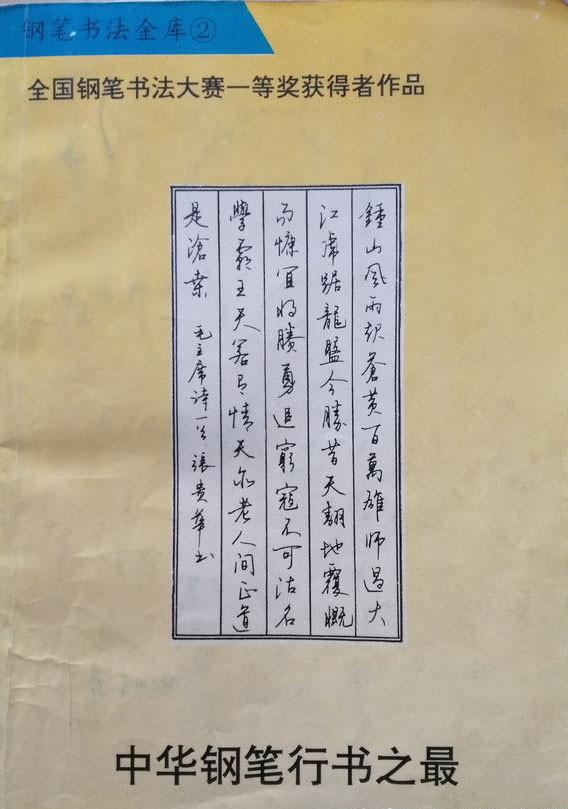 钢笔书法金库②
全国钢笔书法大赛一等奖获得者作品
鍾山風雨起蒼黄百萬雄師過大
江虎踞龍盤今勝昔天翻地覆慨
而慷宜将賸勇追窮寇不可沽名
學霸王天若有情天亦老人间正道
是滄桑 毛主席诗一首 張贵華书
中华钢笔行书之最